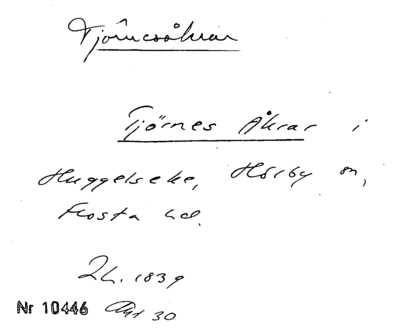 Tjörnesåkrar
Tjörnes Åkrar i
Huggelseke, Hörby sn,
Frosta hd.
Lh. 1839
Nr 10446 Akt 30